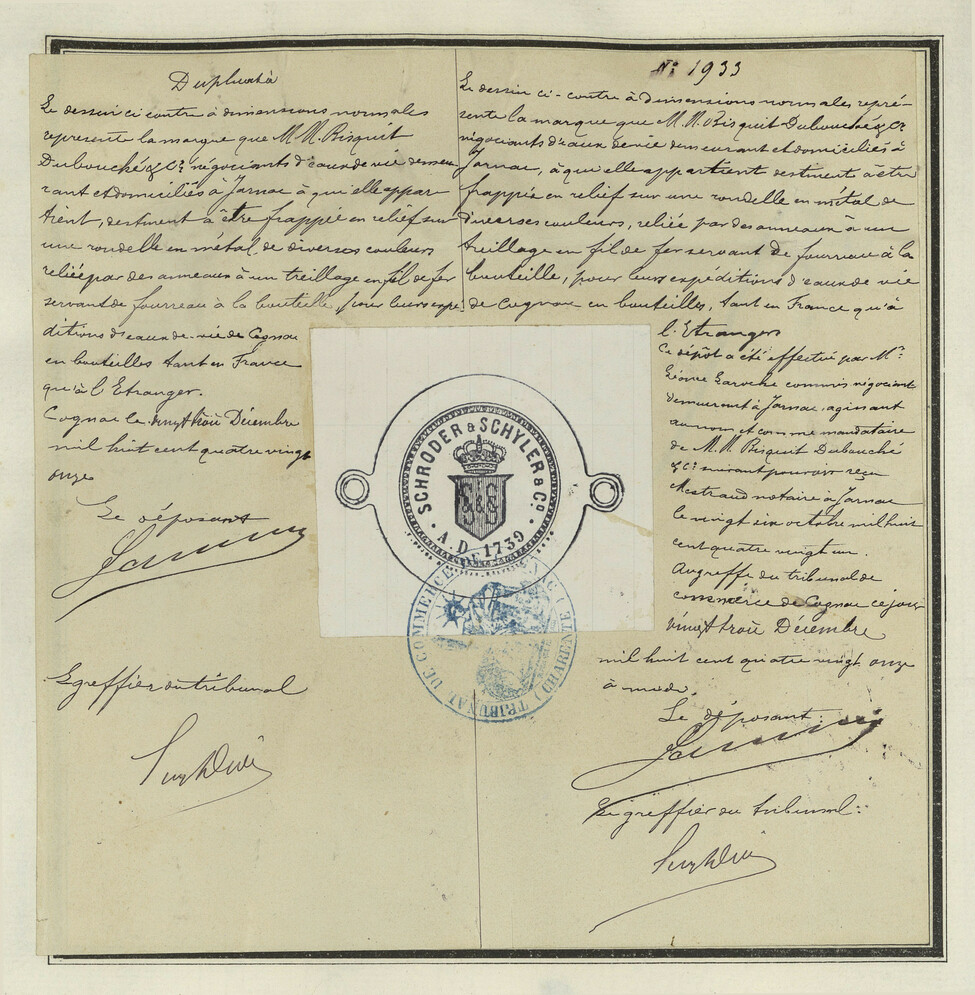 Duplicata
Le dessin ci contre à dimensions normales
represente la marque que M.M. Bisquit
Dubouché & Cie négociants d'eaux de vie demeu
rant et domiciliés à Jarnac à qui elle appar
tient, destinent à être frappée en relief sur
une rondelle en métal de diverses couleurs
reliée par des anneaux à un treillage en fil de fer
servant de fourreau à la bouteille, pour leurs expé
ditions d'eaux-de-vie de Cognac
en bouteilles tant en France
qu'à l'Etranger.
Cognac le vingt trois Décembre
mil huit cent quatre vingt
onze
Le déposant
Le greffier du tribunal
No 1933
Le dessin ci-contre à dimensions normales repré-
sente la marque que M.M. Bisquit Dubouché & Cie
négociants d'eaux de vie demeurant et domiciliés à
Jarnac, à qui elle appartient destinent à être
frappée en relief sur une rondelle en métal de
diverses couleurs, reliée par des anneaux à un
treillage en fil de fer servant de fourreau à la
bouteille, pour leurs expéditions d'eaux de vie
de Cognac en bouteilles, tant en France qu'à
l'Etranger
Ce dépôt a été effectué par Mr
Laroche commis négociant
demeurant à Jarnac, agissant
au nom et comme mandataire
de M.M. Bisquit Dubouché
& Cie suivant pouvoir reçu
Mestraud notaire à Jarnac
le vingt six octobre mil huit
cent quatre vingt un.
Au greffe du tribunal de
commerce de Cognac ce jour
vingt trois Décembre
mil huit cent quatre vingt onze
à midi.
Le déposant:
Le greffier du tribunal:
SCHRODER & SCHYLER & CO.
S & S
A.D. 1739
TRIBUNAL DE COMMERCE DE COGNAC (CHARENTE)